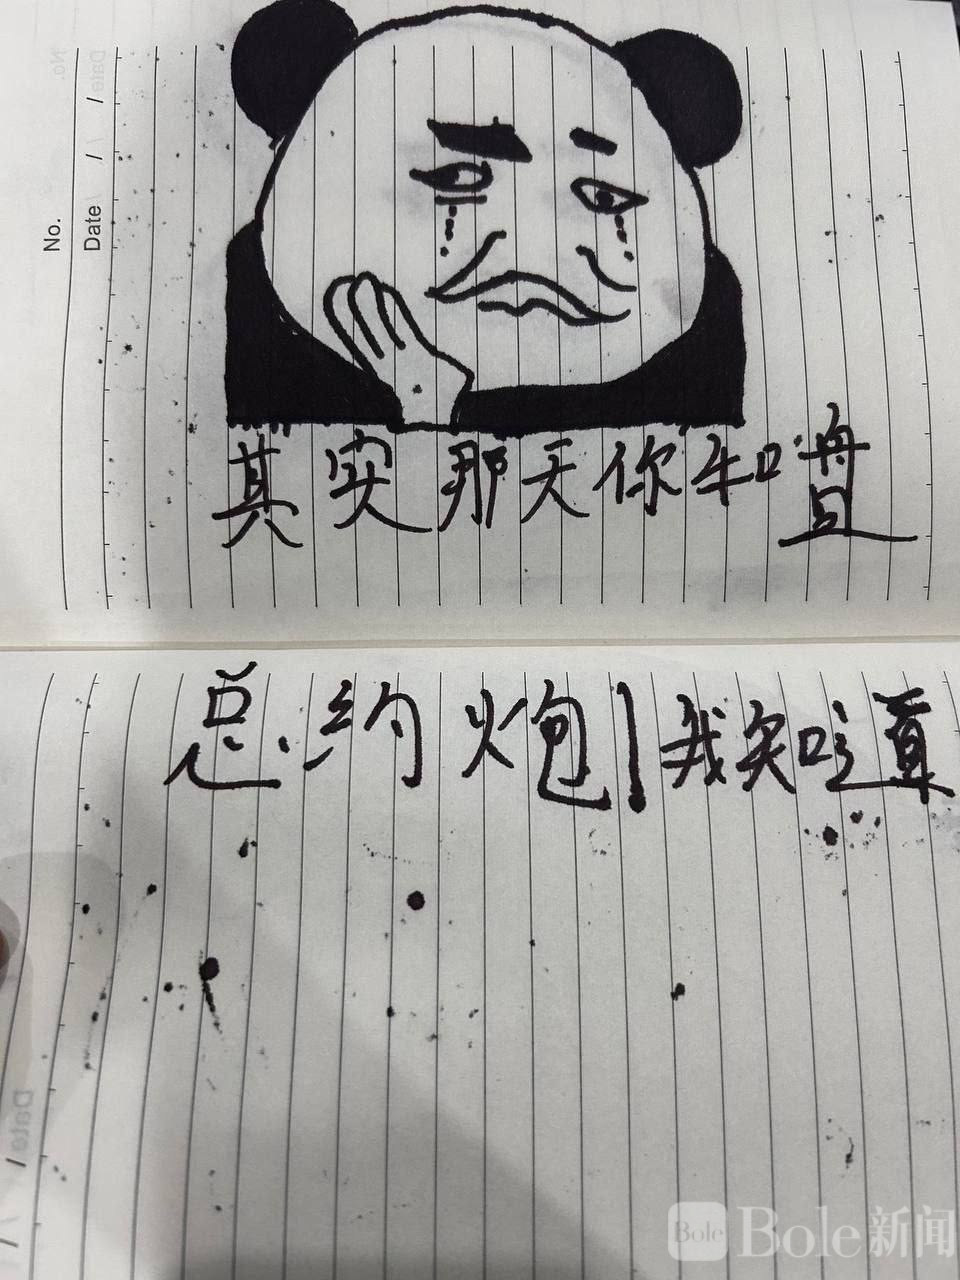 No.
Date / /
其实那天你和盘
总约炮！我知道
Date / /
Bole
Bole新闻